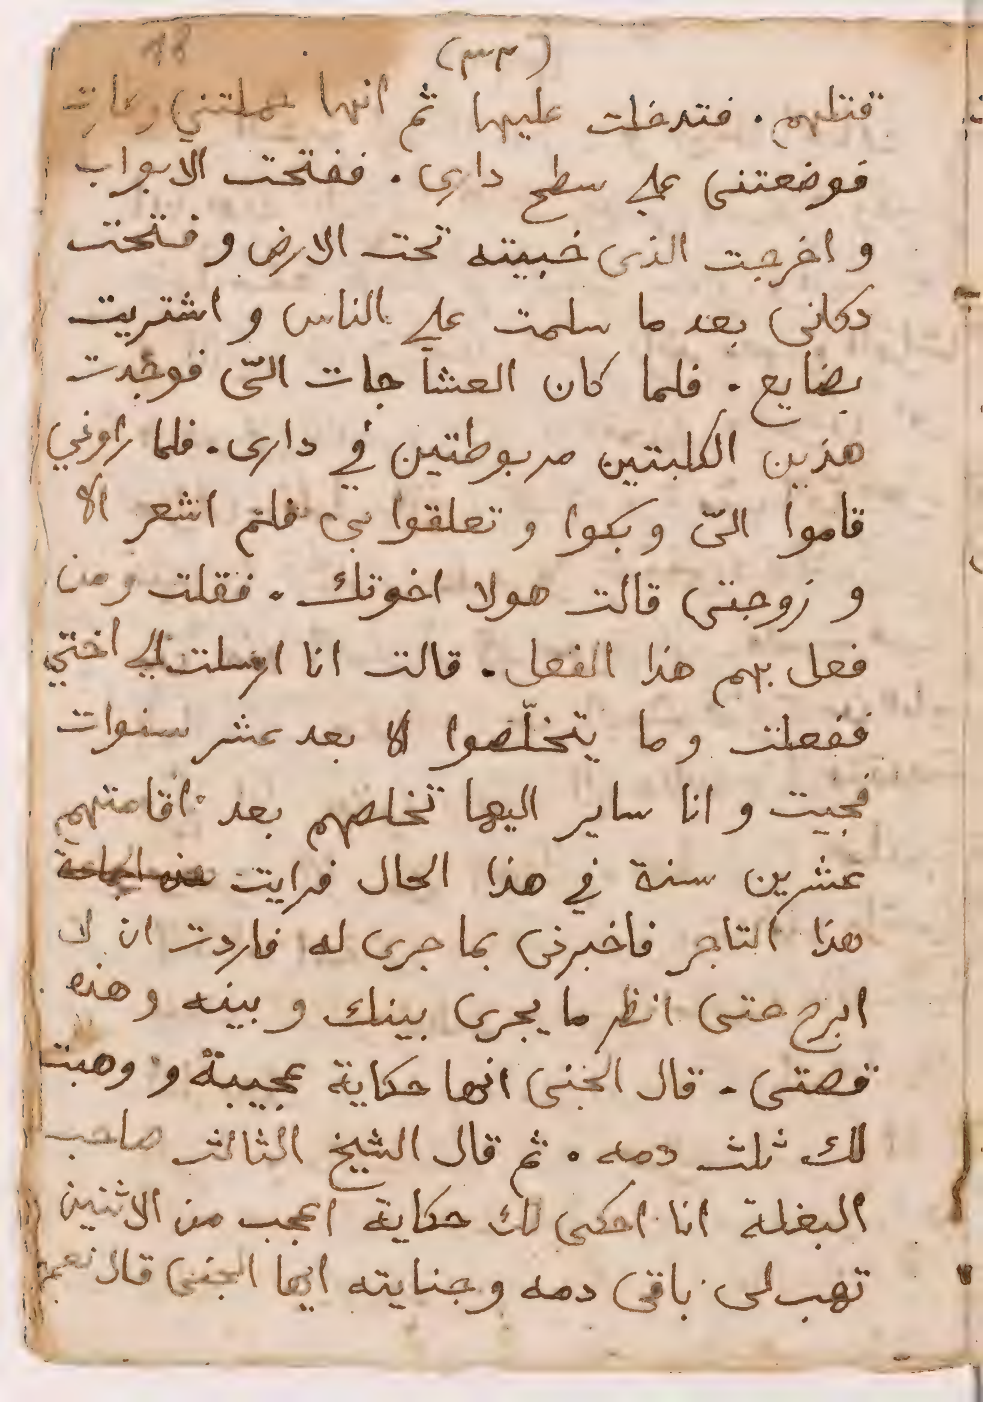 (٣٣) 18
قتلهم . فتدخلت عليها ثم انها حملتني وطارت
فوضعتنى على سطح دارى . ففتحت الابواب
و اخرجت الذى خبيته تحت الارض و فتحت
دكانى بعد ما سلمت على الناس و اشتريت
بضايع . فلما كان العشا جات التى فوجدت
هذين الكلبتين مربوطتين في دارى . فلما راونى
قاموا الىّ و بكوا و تعلقوا بى فلم اشعر الا
و زوجتى قالت هولا اخوتك . فقلت ومن
فعل بهم هذا الفعل . قالت انا ارسلت الى اختي
ففعلت و ما يتخلّصوا الا بعد عشر سنوات
فجيت و انا ساير اليها تخلصهم بعد اقامتهم
عشرين سنة في هذا الحال فرايت
هذا التاجر فاخبرنى بما جرى له فاردت ان لا
ابرح حتى انظر ما يجرى بينك و بينه وهذه
قصتى . قال الجنى انها حكاية عجيبة و وهبت
لك ثلث دمه . ثم قال الشيخ الثالث صاحب
البغلة انا احكى لك حكاية اعجب من الاثنين
تهب لى باقى دمه وجنايته ايها الجنى قال نعم